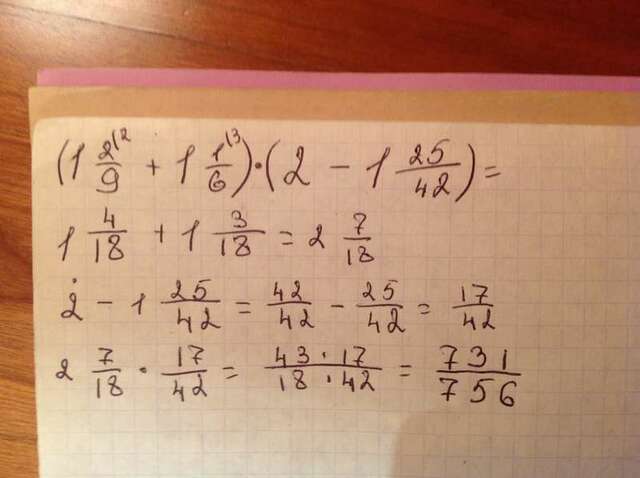 (1 2/9 |2 + 1 1/6 |3) · (2 − 1 25/42) =
1 4/18 + 1 3/18 = 2 7/18
2 − 1 25/42 = 42/42 − 25/42 = 17/42
2 7/18 · 17/42 = 43 · 17/18 · 42 = 731/756